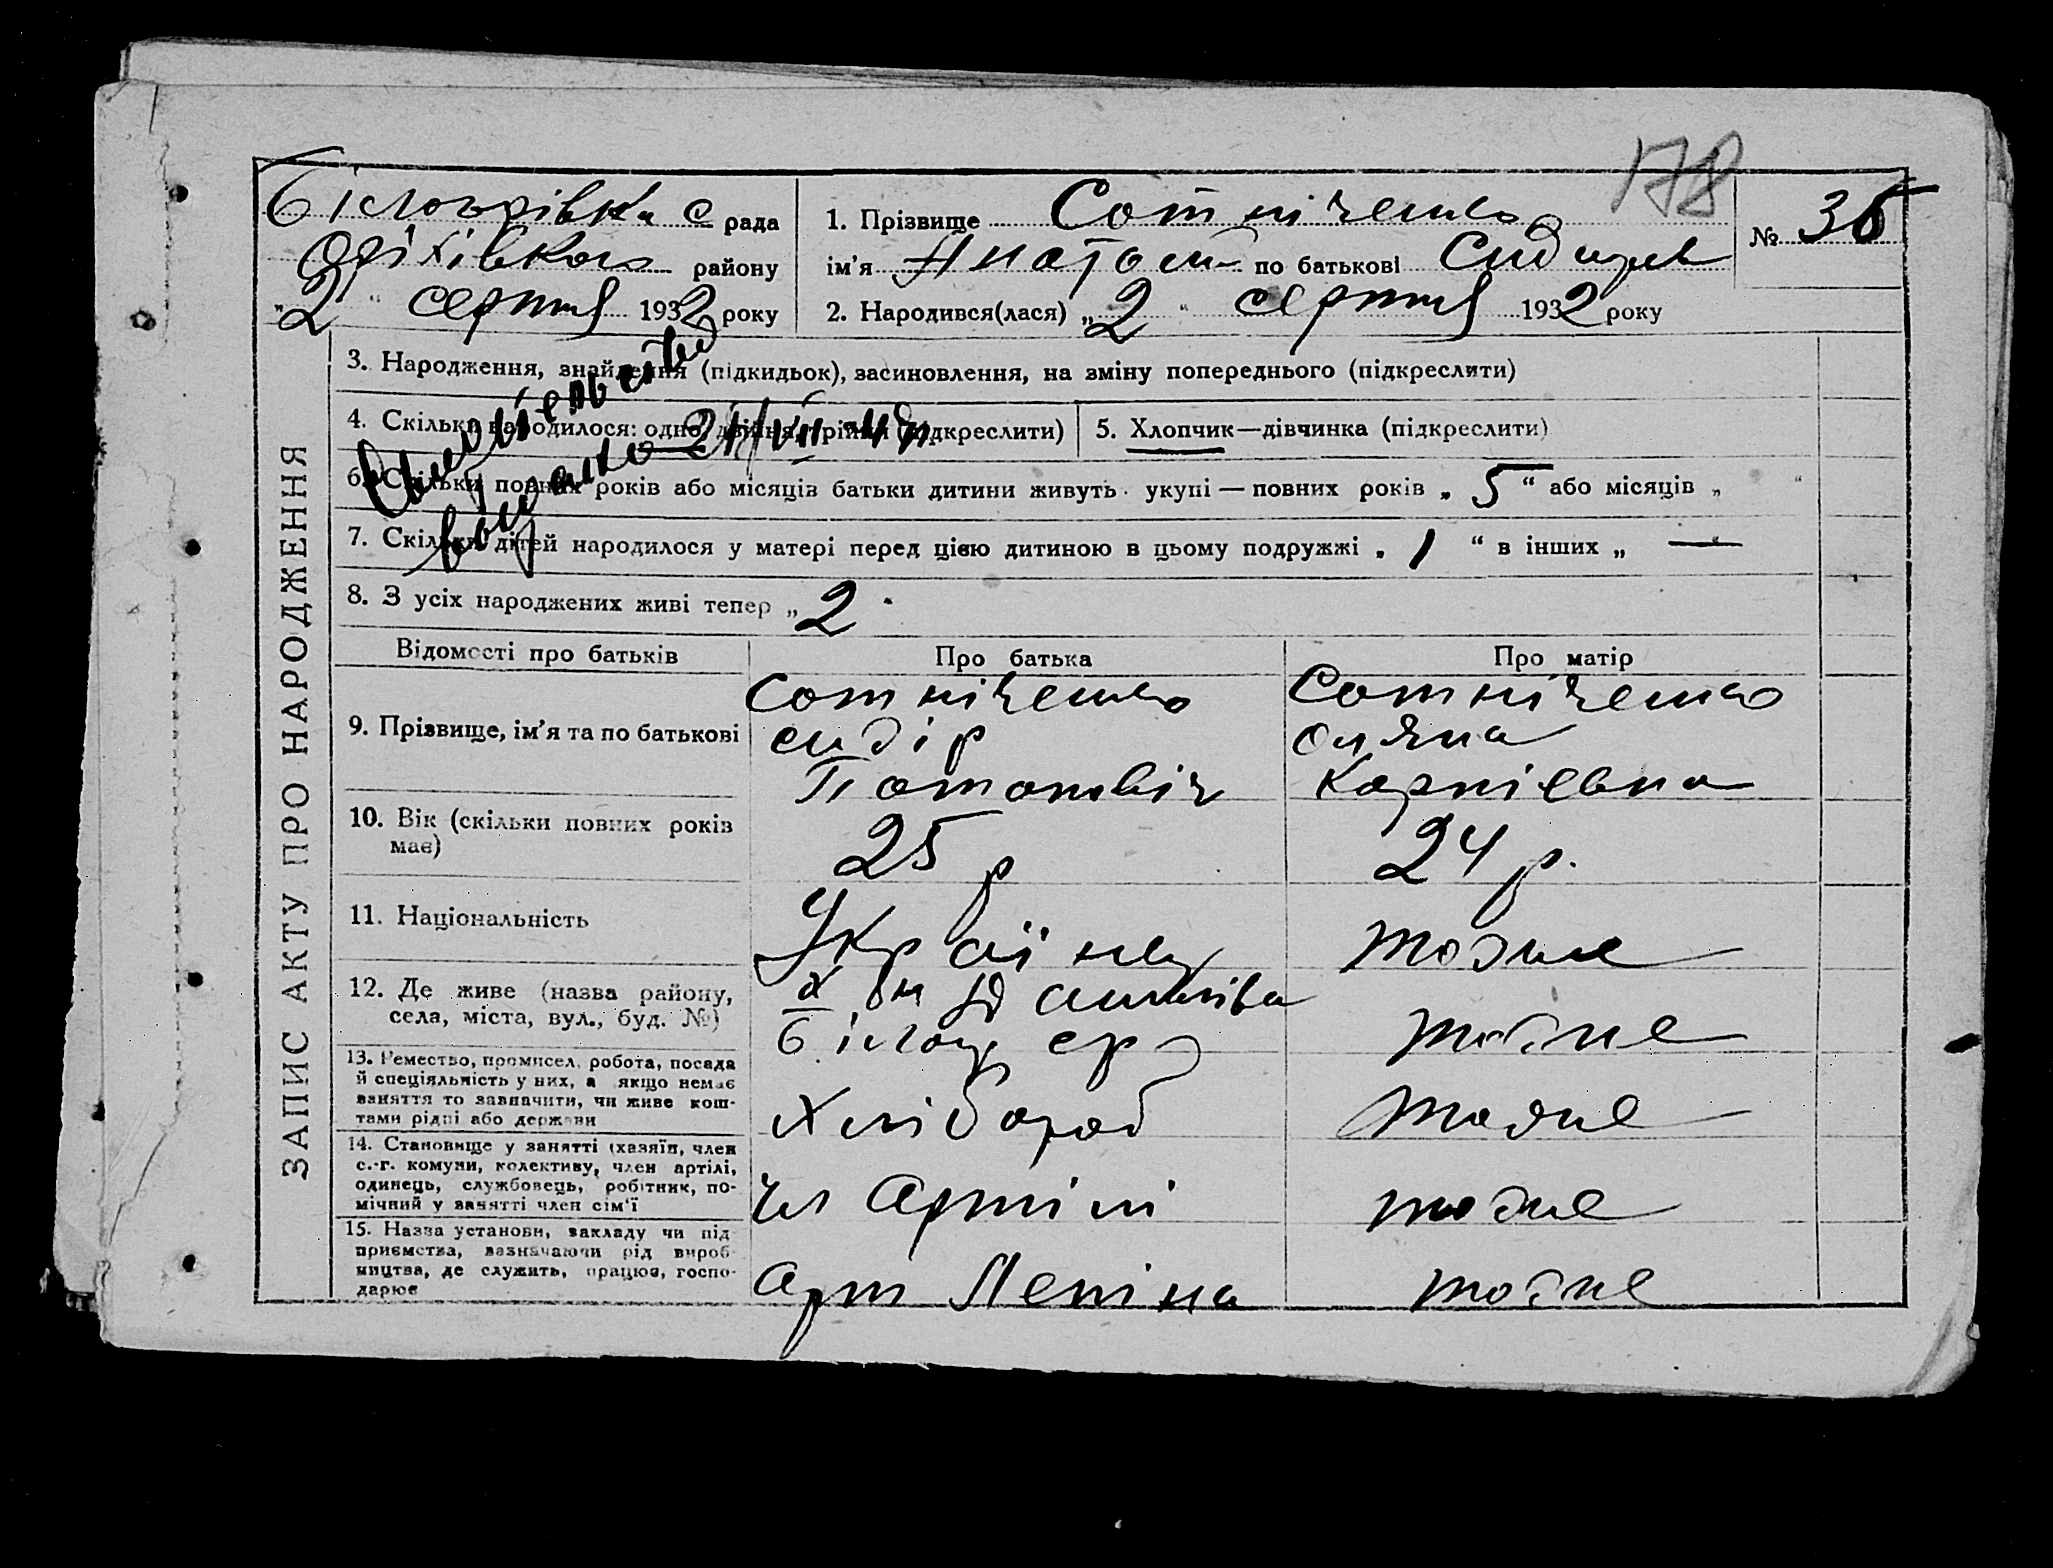 178
Білогорівка с рада
Оріхівсько району
„2“ серпня 1932 року
1. Прізвище Сотніченко
ім'я Анатолій по батькові Сидоров
№ 35
2. Народився(лася) „2“ серпня 1932 року
ЗАПИС АКТУ ПРО НАРОДЖЕННЯ
3. Народження, знайдення (підкидьок), засиновлення, на зміну попереднього (підкреслити)
4. Скільки народилося: одно, двійня, трійня (підкреслити)
5. Хлопчик—дівчинка (підкреслити)
6. Скільки повних років або місяців батьки дитини живуть укупі — повних років „5“ або місяців „ “
7. Скільки дітей народилося у матері перед цією дитиною в цьому подружжі „1“ в інших „—“
8. З усіх народжених живі тепер „2“
Відомості про батьків
Про батька
Про матір
9. Прізвище, ім'я та по батькові
Сотніченко
сидір
Потапович
Сотніченко
Оляна
Карпіевна
10. Вік (скільки повних років
має)
25 р
24 р.
11. Національність
Українец
тоже
12. Де живе (назва району,
села, міста, вул., буд. №)
Білогор ср
тоже
13. Ремество, промисел, робота, посада
й спеціяльність у них, а якщо немає
заняття то зазначити, чи живе кош-
тами рідні або держави
Хлібороб
тоже
14. Становище у занятті (хазяїн, член
с.-г. комуни, колективу, член артілі,
одинець, службовець, робітник, по-
мічний у занятті член сім'ї
чл Артілі
тоже
15. Назва установи, закладу чи під-
приємства, зазначаючи рід вироб-
ництва, де служить, працює, госпо-
дарює
Арт Леніна
тоже